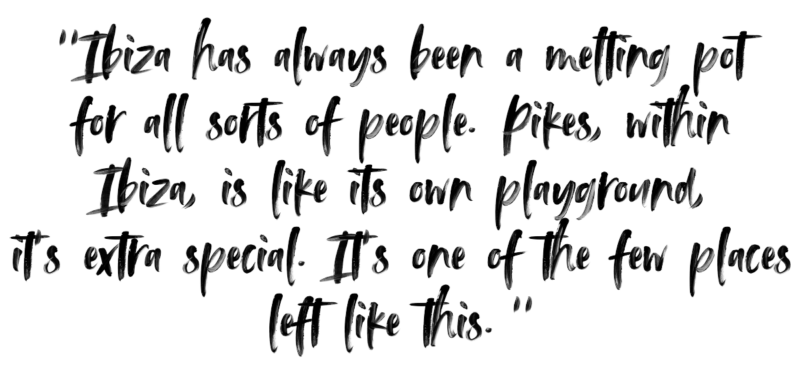 "Ibiza has always been a melting pot
for all sorts of people. Pikes, within
Ibiza, is like its own playground,
it's extra special. It's one of the few places
left like this."